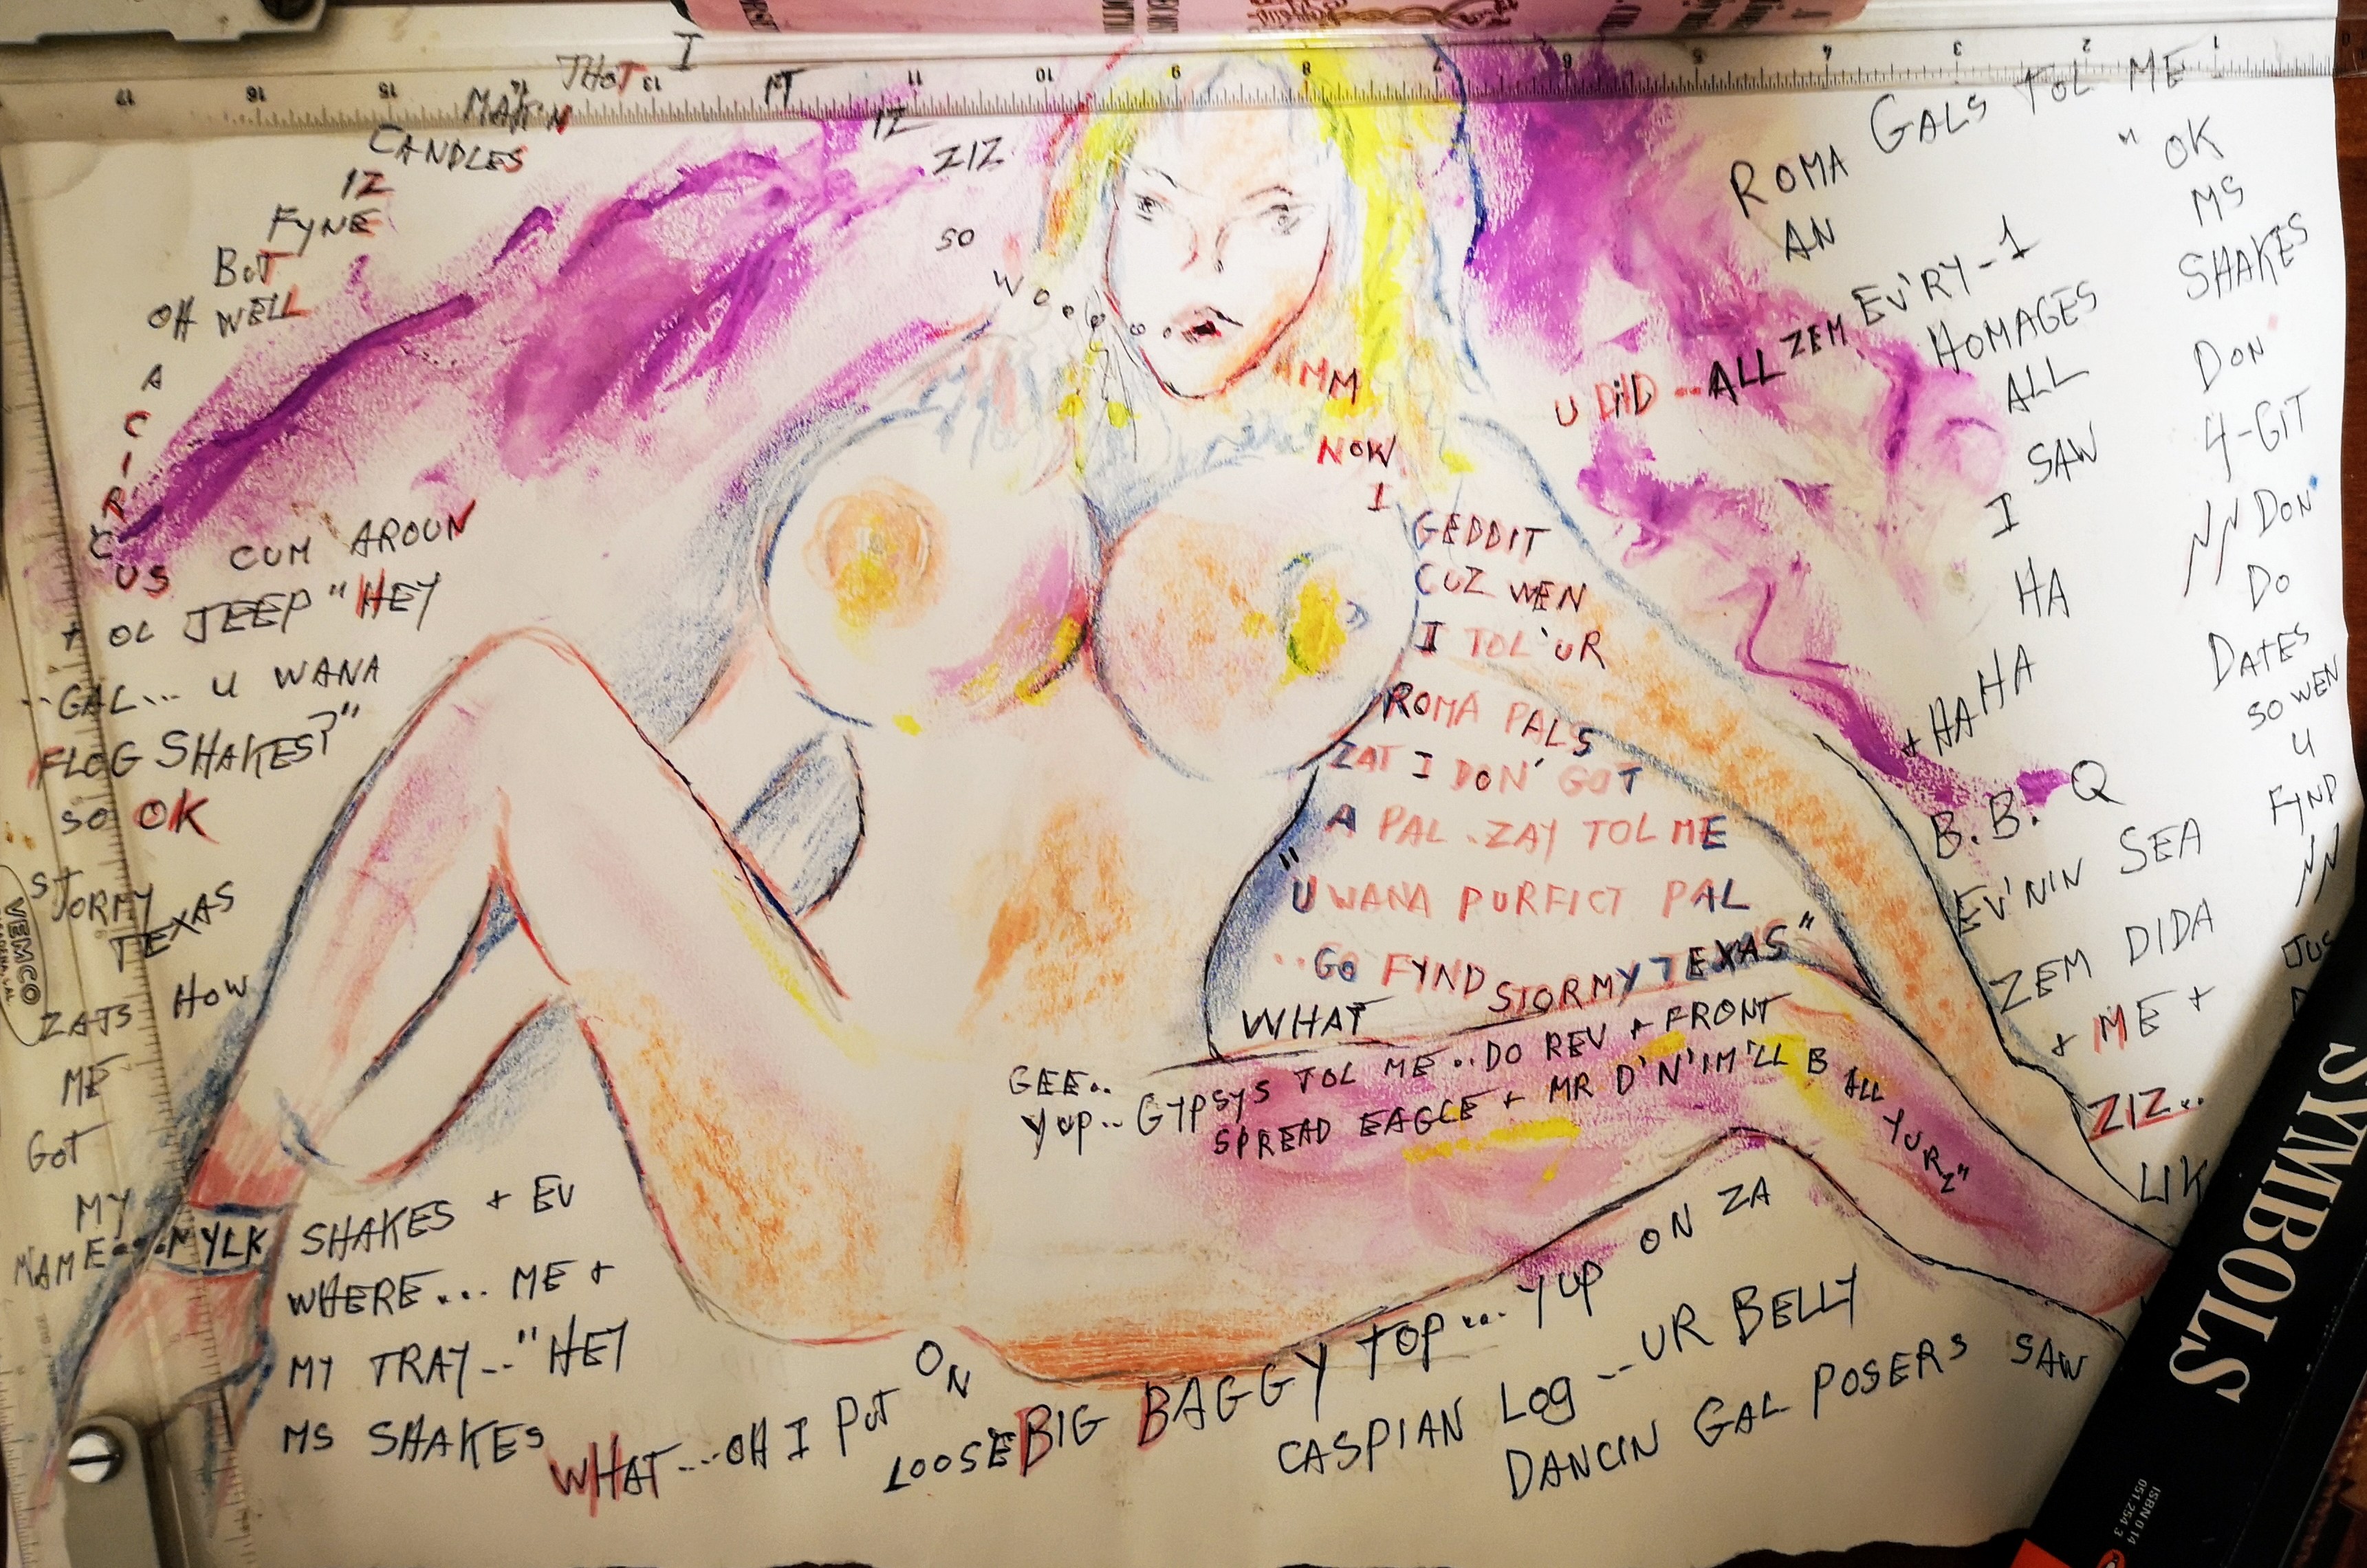 I
THOT
MAK'N
CANDLES
IZ
FYNE
BUT
OH WELL
A
CIRCUS
CUM AROUN
+ OL JEEP "HEY
..GAL... U WANA
FLOG SHAKES?"
SO OK
STORMY
TEXAS
ZATS HOW
ME
GOT
MY
NAME....MYLK
SHAKES + EV
WHERE... ME +
MY TRAY..."HEY
MS SHAKES
WHAT...OH I PUT ON
LOOSE BIG BAGGY TOP... YUP ON ZA
CASPIAN LOG...UR BELLY
DANCIN GAL POSERS SAW
IZ
ZIZ
SO
MM
NOW
I
GEDDIT
CUZ WEN
I TOL'UR
ROMA PALS
ZAT I DON' GOT
A PAL .ZAY TOL ME
"U WANA PURFICT PAL
..GO FYND STORMY TEXAS"
WHAT
GEE..
YUP.. GYPSYS TOL ME..DO REV + FRONT
SPREAD EAGLE + MR D'N'IM'LL B ALL YURZ"
U DID...ALL ZEM EV'RY-1
ROMA GALS TOL ME
AN
HOMAGES
ALL
SAW
I
HA
+ HAHA
B.B.Q
EV'NIN SEA
ZEM DIDA
+ ME +
ZIZ..
LIK
"OK
MS
SHAKES
DON'
4-GIT
DON'
DO
DATES
SO WEN
U
FYND
SYMBOLS
ISBN 0 14
051.254 3
VEMCO
17 16 15 14 13 11 10 9 8 7 6 5 4 3 2 1